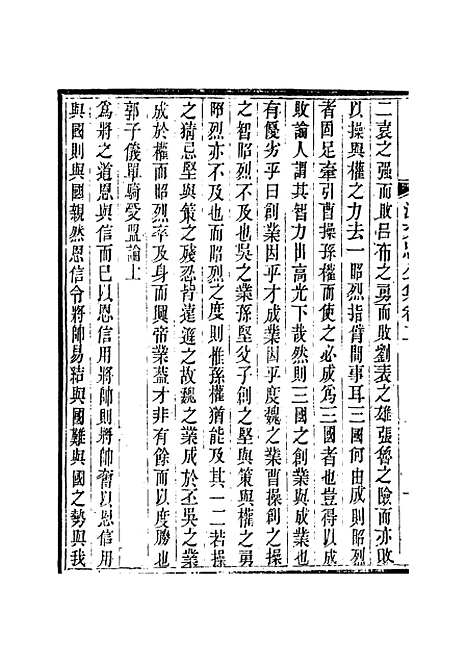 二袁之强而敗呂布之勇而敗劉表之雄張魯之險而亦敗
以操與權之力去一昭烈指臂間事耳三國何由成則昭烈
者固足牽引曹操孫權而使之必成爲三國者也豈得以成
敗論人謂其智力出高光下哉然則三國之創業與成業也
有優劣乎曰創業因乎才成業因乎度魏之業曹操創之操
之智昭烈不及也吳之業孫堅父子創之堅與策與權之勇
昭烈亦不及也以度言之昭烈之度則惟孫權猶能及其一二若操
之猜忌堅與策之殘忍肯遠遜之故魏之業成於丕吳之業
成於權而昭烈則及身而興帝業蓋才非有餘而以度勝也
郭子儀單騎受盟論上
爲將之道恩與信而已以恩信用將帥則將帥奮以恩信用
與國則與國親然恩信令將帥易結與國難與國之勢與我